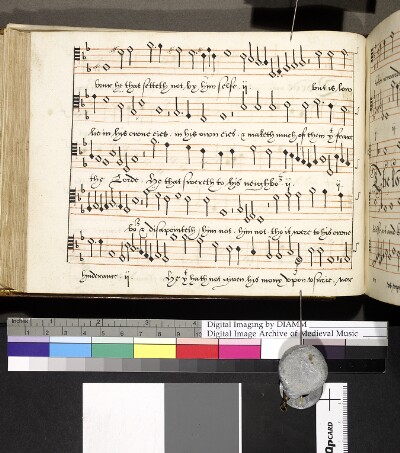 your he that setteth not by hym selfe . ij . but is low
lie in hys owne eies . in his owne eies . & maketh much of them yt feare
the Lorde . He that swereth to his neighbor ij . ij .
bor & disapointeth hym not . hym not . tho it were to his owne
hinderance . ij . He yt hath not geven his mony upon usurie , nor
Inches 1 2 3 4 5 6 7
Digital Imaging by DIAMM
Digital Image Archive of Medieval Music
CARD